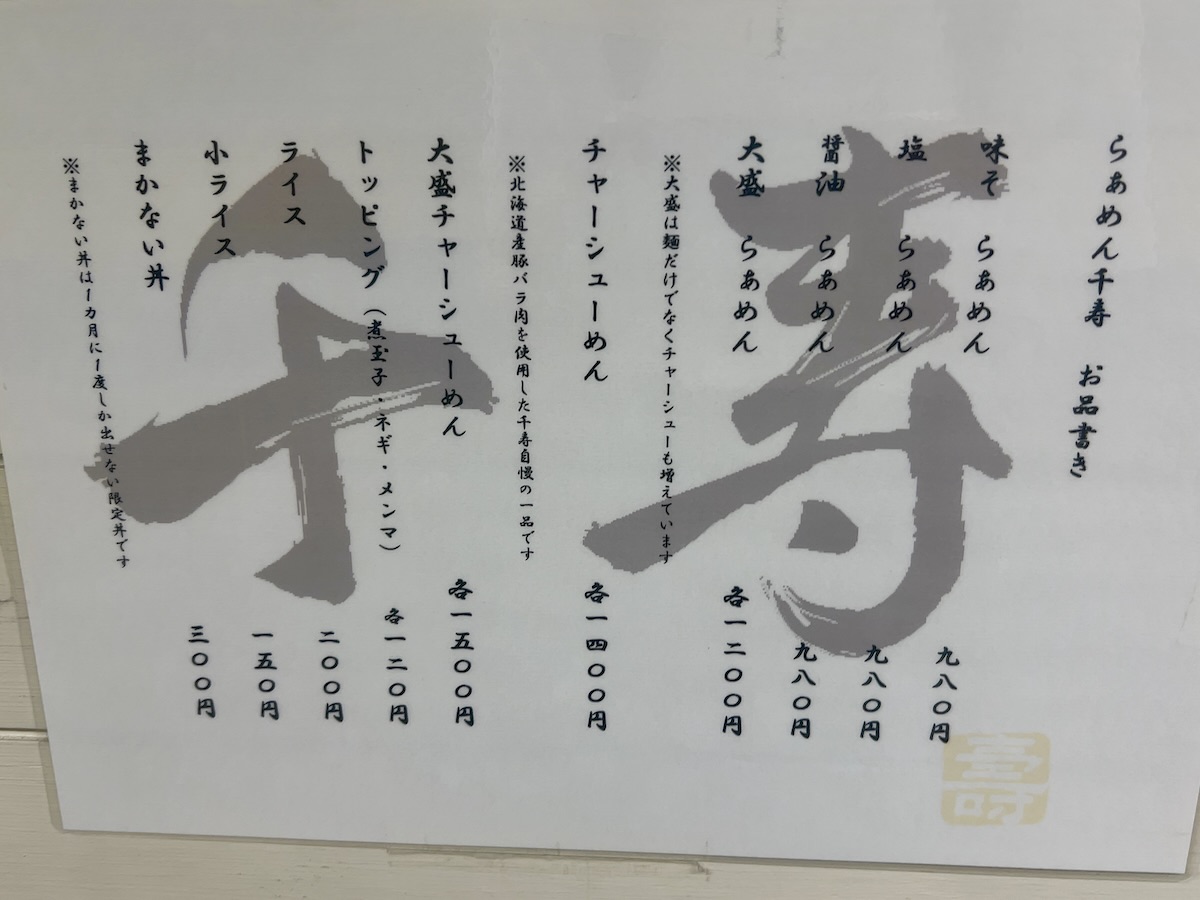 らぁめん千寿 お品書き
味そ らぁめん 九八〇円
塩 らぁめん 九八〇円
醤油 らぁめん 九八〇円
大盛 らぁめん 各一二〇〇円
※大盛は麺だけでなくチャーシューも増えています
チャーシューめん 各一四〇〇円
※北海道産豚バラ肉を使用した千寿自慢の一品です
大盛チャーシューめん 各一五〇〇円
トッピング（煮玉子・ネギ・メンマ） 各一二〇円
ライス 二〇〇円
小ライス 一五〇円
まかない丼 三〇〇円
※まかない丼は1カ月に1度しか出せない限定丼です
千寿